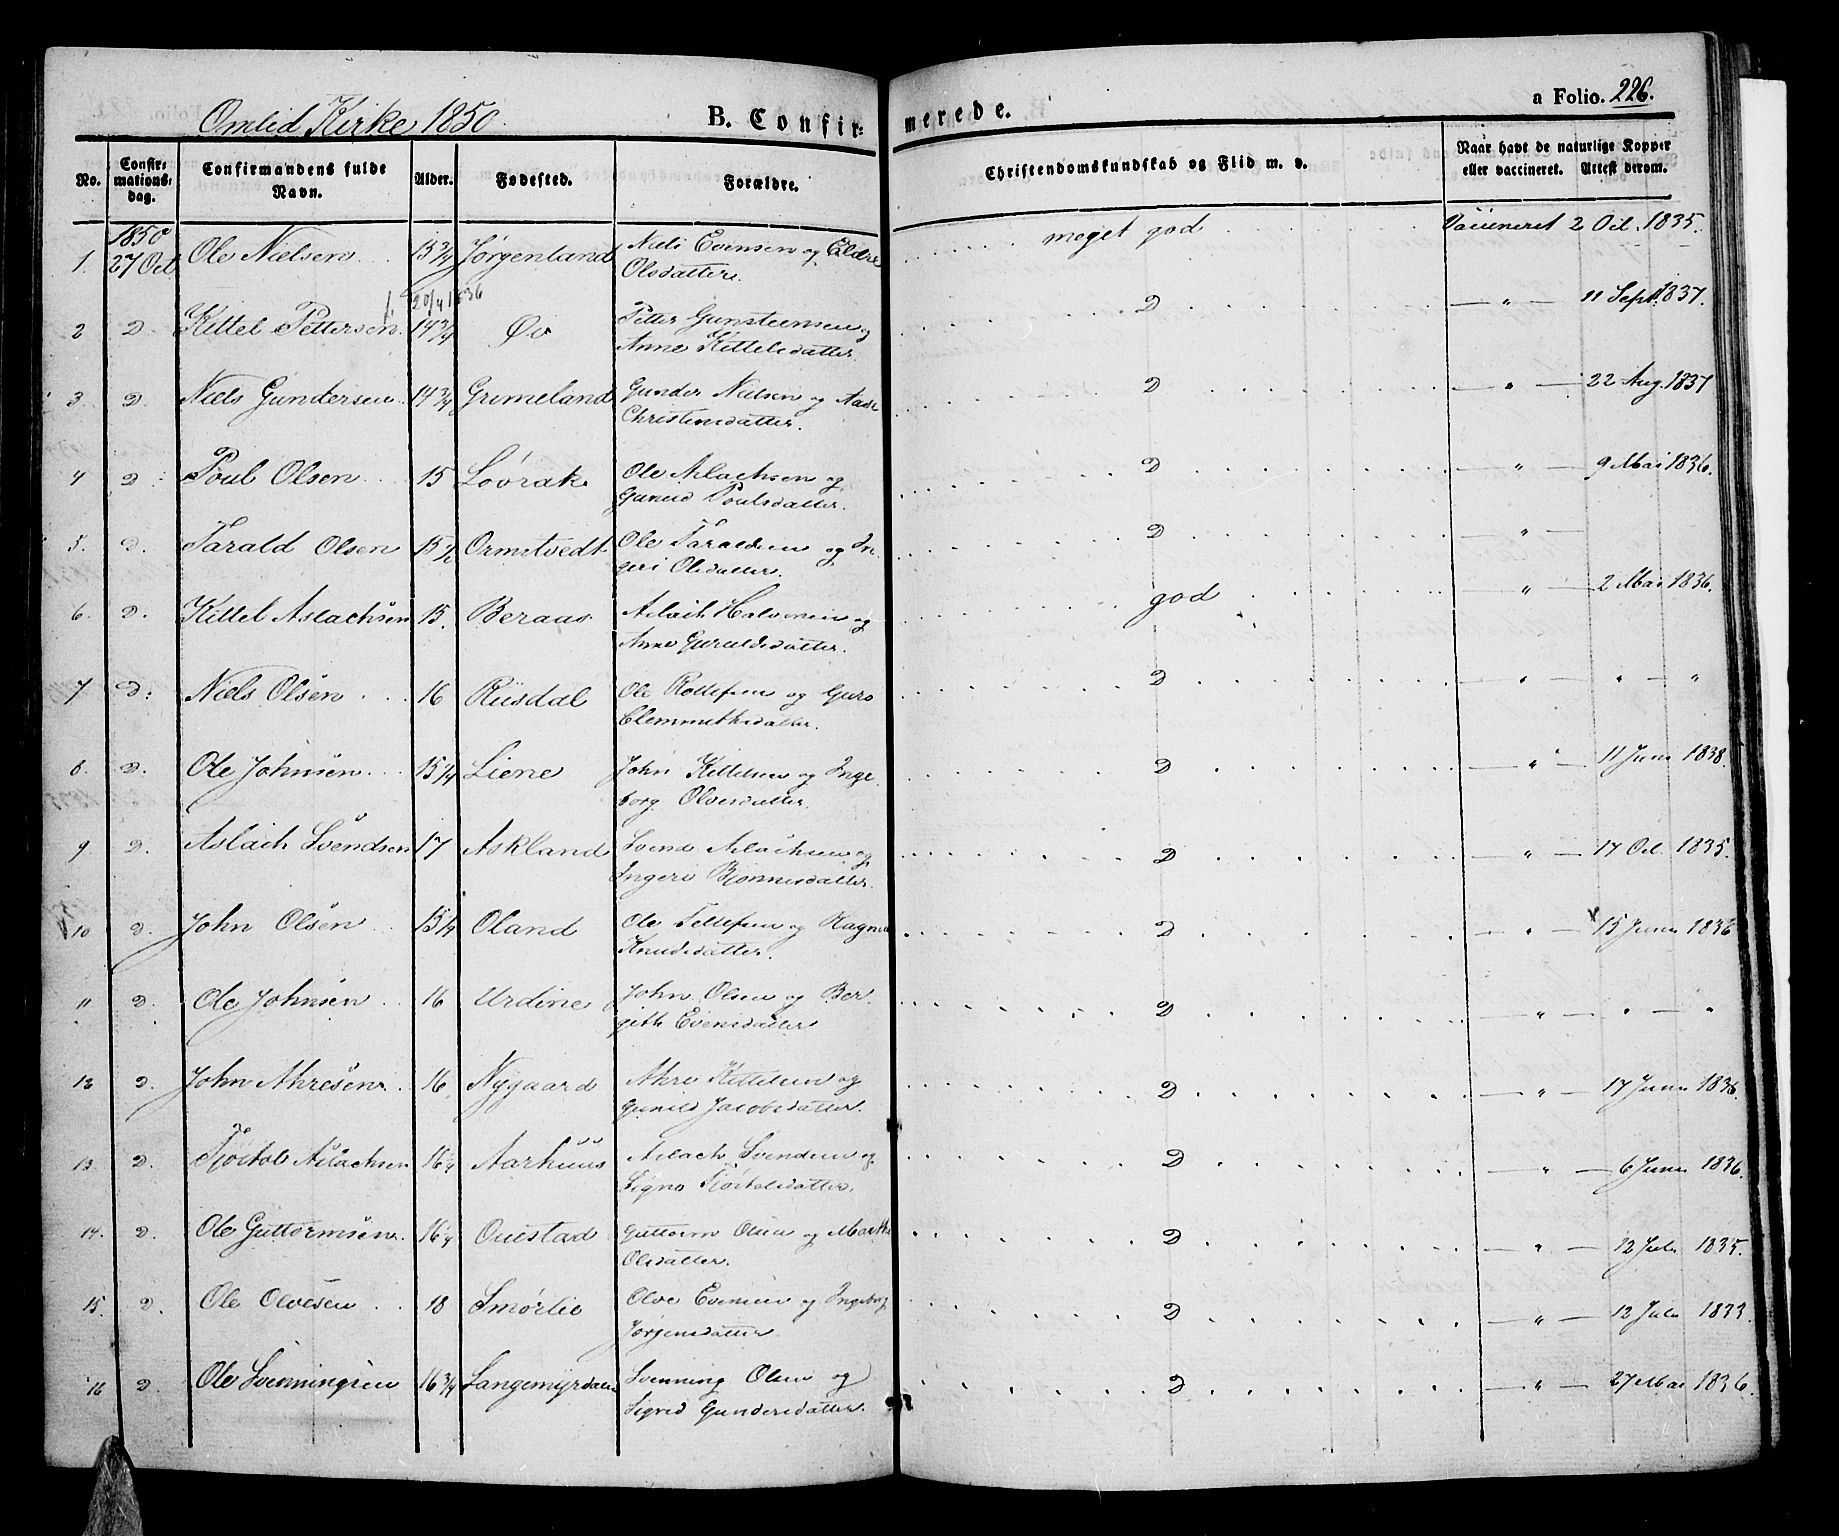 Omlid Kirke 1850.
B. Confirmerede.
a Folio. 226.
No. Confirmationsdag. Confirmandens fulde Navn. Alder. Fødested. Forældre. Christendomskundskab og Flid m. v. Naar havt de naturlige Kopper eller vaccineret. Attest derom.
1. 1850 27 Oct Ole Nielsen 15 3/4 Jørgenland Niels Evensen og
Olsdatter. meget god Vaccineret 2 Oct. 1835.
20/4 1836
2 D. Kittel Pettersen 14 3/4 Øi Petter Gunsteensen og
Anne Kittelsdatter. D — " — 11 Sept. 1837.
3. D. Niels Gundersen 14 3/4 Grimeland Gunder Nielsen og Aase
Christensdatter. D — " — 22 Aug. 1837
4 D. Poul Olsen 15 Løvrak Ole Aslachsen og
Gunild Poulsdatter. D — " — 9 Mai 1836.
5. D. Tarald Olsen 15 1/2 Ormetvedt Ole Taraldsen og In
geri Olsdatter. D — " —
6. D. Kittel Aslachsen 15. Beraas Aslach Halvorsen og
Anne Guraldsdatter. god " — 2 Mai 1836.
7 D. Niels Olsen 16 Riisdal Ole Rollefsen og Guro
Clemmethsdatter. D — " — " — "
8. D. Ole Johnsen 15 1/4 Liene John Kittelsen og Inge
borg Olvesdatter. D — " — 11 Juni 1838.
9. D. Aslach Svendsen 17 Askland Svend Aslachsen og
Ingeri Bjønnesdatter. D — " — 17 Oct. 1835.
10 D. John Olsen 15 1/4 Oland Ole Tellefsen og Ragni
Knudsdatter. D — " — 15 Juni 1836
11 D. Ole Johnsen 16 Urdine John Olsen og Ber
gith Evensdatter D — " — " — "
12 D. John Ahresen 16 Nygaard Ahre Kittelsen og
Gunild Jacobsdatter. D — " — 17 Juni 1836.
13. D. Tjøstol Aslachsen 16 1/4 Aarhuus Aslach Svendsen og
Signe Tjøstolsdatter. D — " — 6 Juni 1836.
14. D. Ole Guttormsen 16 1/4 Ouestad Guttorm Olsen og Marthe
Olsdatter. D — " — 12 Juli 1835.
15. D. Ole Olvesen 18 Smørlie Olve Evensen og Ingeborg
Jørgensdatter D — " — 12 Juli 1833.
16 D. Ole Svenningsen 16 3/4 Langemyrdalen Svenning Olsen og
Sigrid Gundersdatter. D — " — 27 Mai 1836.